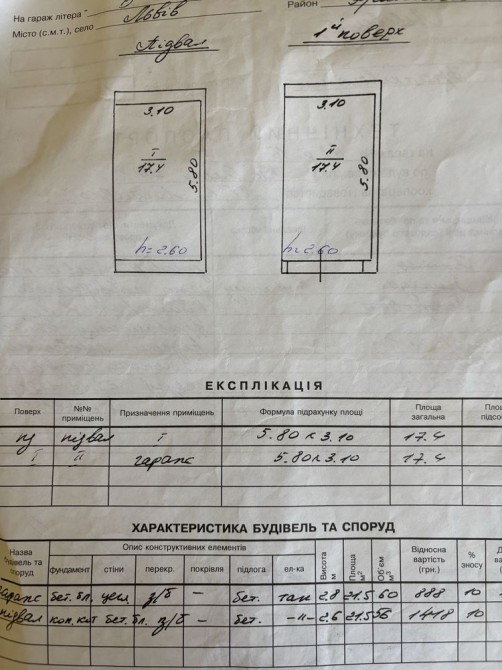 На гараж літера "
Район
Місто (с.м.т.), село Львів
Підвал
1й поверх
3.10
3.10
I
17.4
5.80
II
17.4
5.80
h=2.60
h=2.60
ЕКСПЛІКАЦІЯ
Поверх №№ приміщень Призначення приміщень Формула підрахунку площі Площа загальна
підвал I 5.80 х 3.10 17.4
I II гараж 5.80х 3.10 17.4
ХАРАКТЕРИСТИКА БУДІВЕЛЬ ТА СПОРУД
Назва будівель та споруд Опис конструктивних елементів Висота м Площа м² Об'єм м³ Відносна вартість (грн.) % зносу
фундамент стіни перекр. покрівля підлога ел-ка
гараж бет. бл. цегл з/б – бет. так 2.8 21.5 60 888 10
підвал бет. бл. з/б – бет. -"- 2.6 21.5 56 1418 10